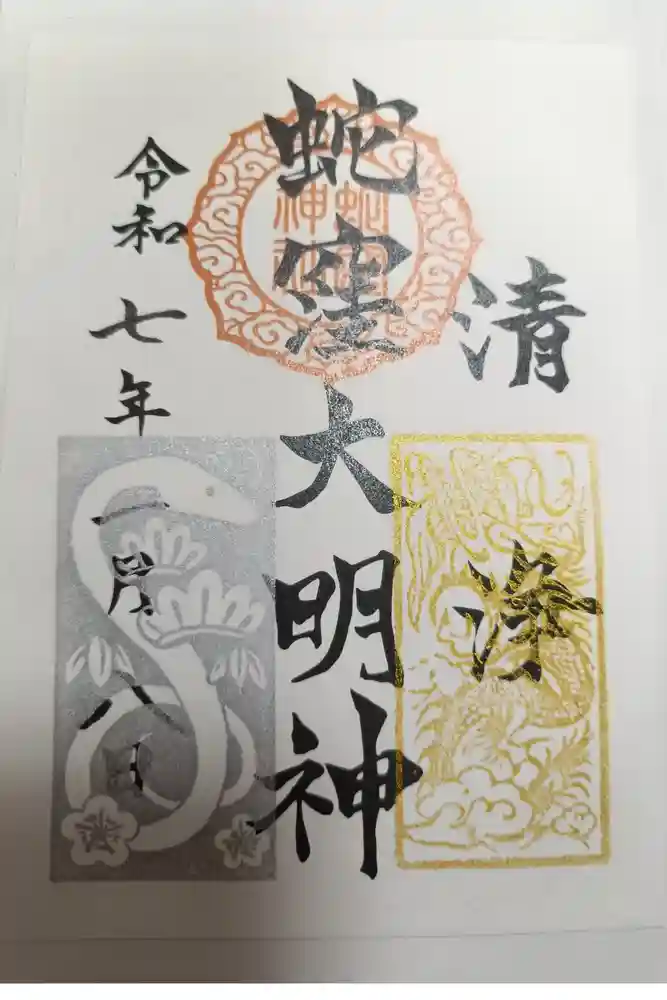 清浄
蛇窪大明神
令和七年一月八日
蛇窪神社